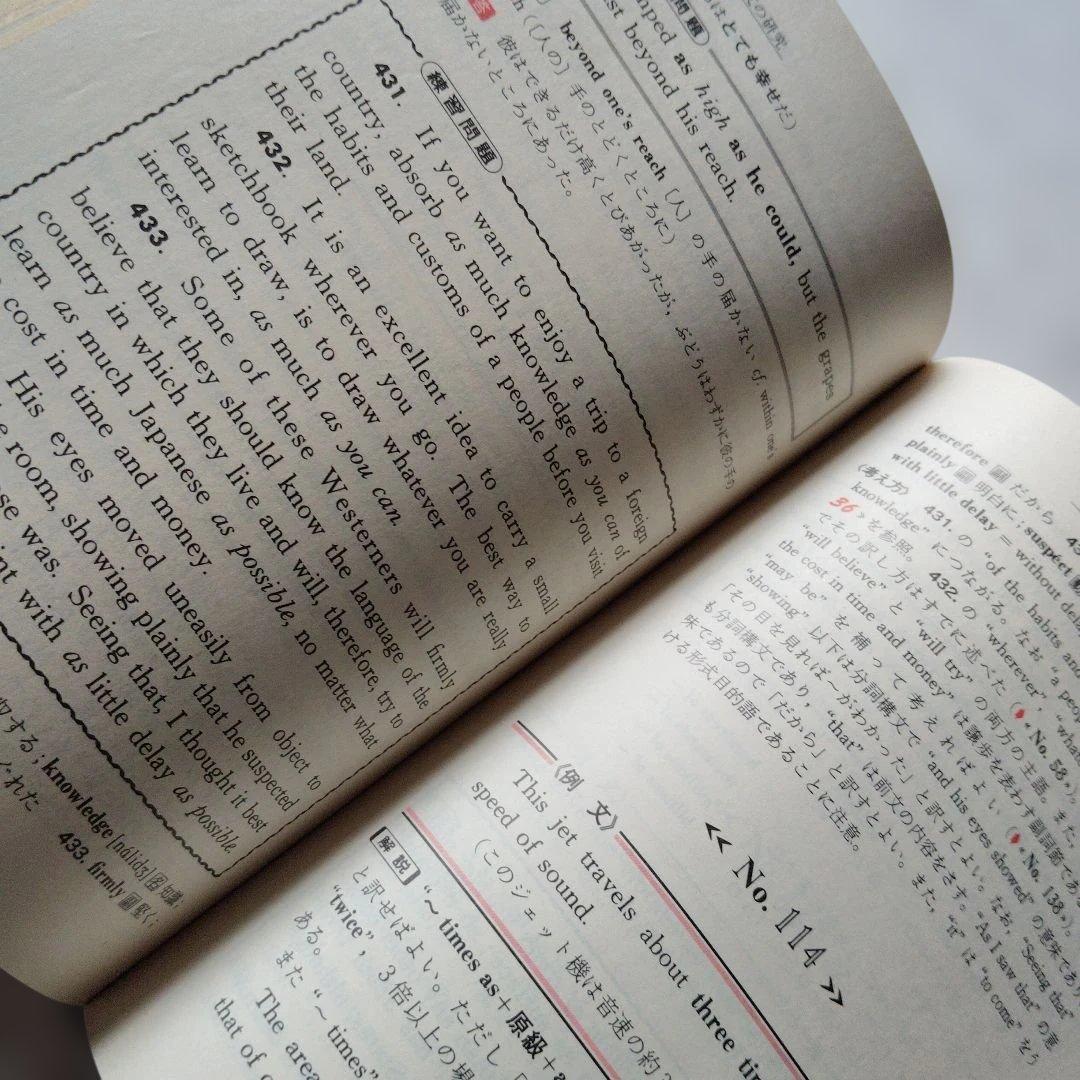 文の研究
はとても幸せだ)
問題
mped as high as he could, but the grapes
st beyond his reach.
答
beyond one's reach [人] の手の届かない cf. within one's
h ([人の] 手のとどくところに)
彼はできるだけ高くとびあがったが, ぶどうはわずかに彼の手の
届かないところにあった。
練習問題
431. If you want to enjoy a trip to a foreign
country, absorb as much knowledge as you can of
the habits and customs of a people before you visit
their land.
432. It is an excellent idea to carry a small
sketchbook wherever you go. The best way to
learn to draw, is to draw whatever you are really
interested in, as much as you can
433. Some of these Westerners will firmly
believe that they should know the language of the
country in which they live and will, therefore, try to
learn as much Japanese as possible, no matter what
cost in time and money.
His eyes moved uneasily from object to
room, showing plainly that he suspected
se was. Seeing that, I thought it best
int with as little delay as possible.
する; knowledge [nálidʒ] 名 知識
ぐれた
433. firmly 副 堅く;
therefore 副 だから
plainly 副 明白に; suspect
with little delay = without delay
(考え方) 431. の "of the habits and
knowledge" につながる。なお "a peop
36 》を参照。 432. の "wherever", "wha
てその訳し方はすでに述べた (No. 58)。また,
"will believe" と "will try" の両方の主語。
the cost in time and money" は譲歩を表わす副詞節であ
"may be" を補って考えればよい。(No. 138)。
"showing" 以下は分詞構文で "and his eyes showed" の意味であり
「その目を見れば〜がわかった」と訳すとよい。なお, "Seeing that"
も分詞構文であり, "that" は前文の内容をさす。"As I saw that" の意
味であるので「だから」と訳すとよい。また, "it" は "to come" をう
ける形式目的語であることに注意。
《No. 114》
《例文》
This jet travels about three tim
speed of sound.
(このジェット機は音速の約3
解説
"〜 times as+原級+a
と訳せばよい。ただし
"twice", 3倍以上の場
ある。
また "〜 times"
The area
that of